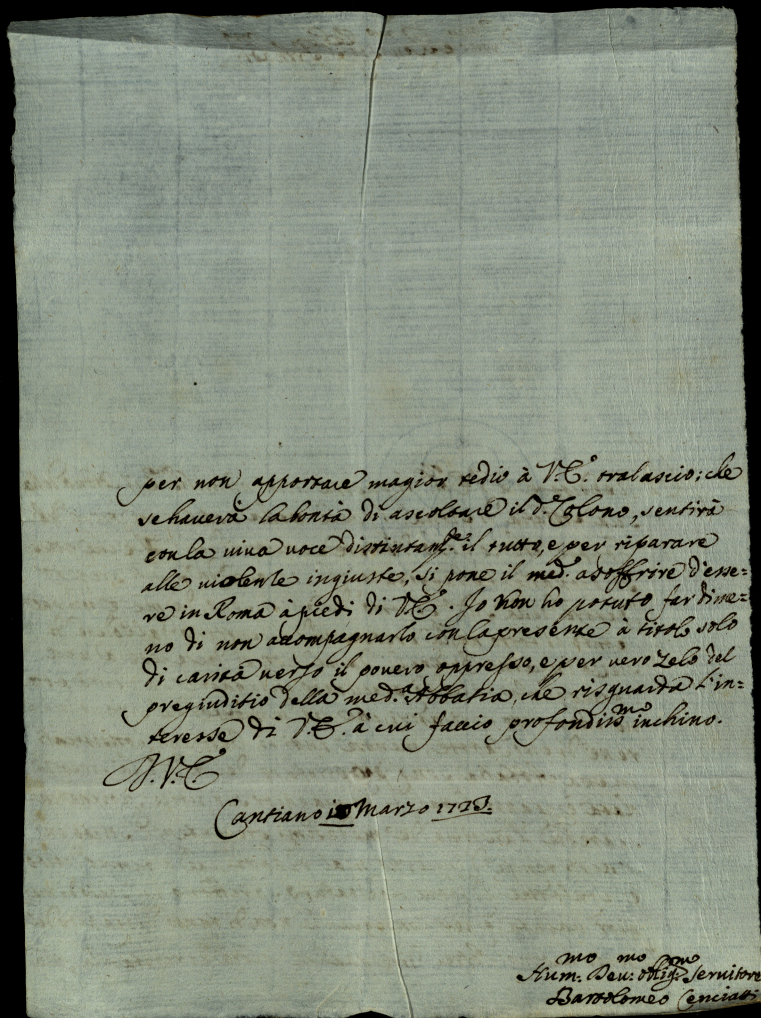 per non apportare magior tedio à V.E. tralascio; che
se haverà la bontà di ascoltare il d.º Colono, sentirà
con la viva voce distintam.te il tutto, e per riparare
alle violente ingiuste, si pone il med.º a soffrire d'esse=
re in Roma à piedi di V.E. Io non ho potuto far di me=
no di non accompagnarlo con la presente à titolo solo
di carità verso il povero oppresso, e per vero zelo del
pregiuditio della med.ª Abbatia, che risguarda l'in=
teresse di V.E. à cui faccio profondiss.mo inchino.
D.V.E.
Cantiano Marzo
Hum.mo Dev.mo Oblig.mo Servitore
Bartolomeo